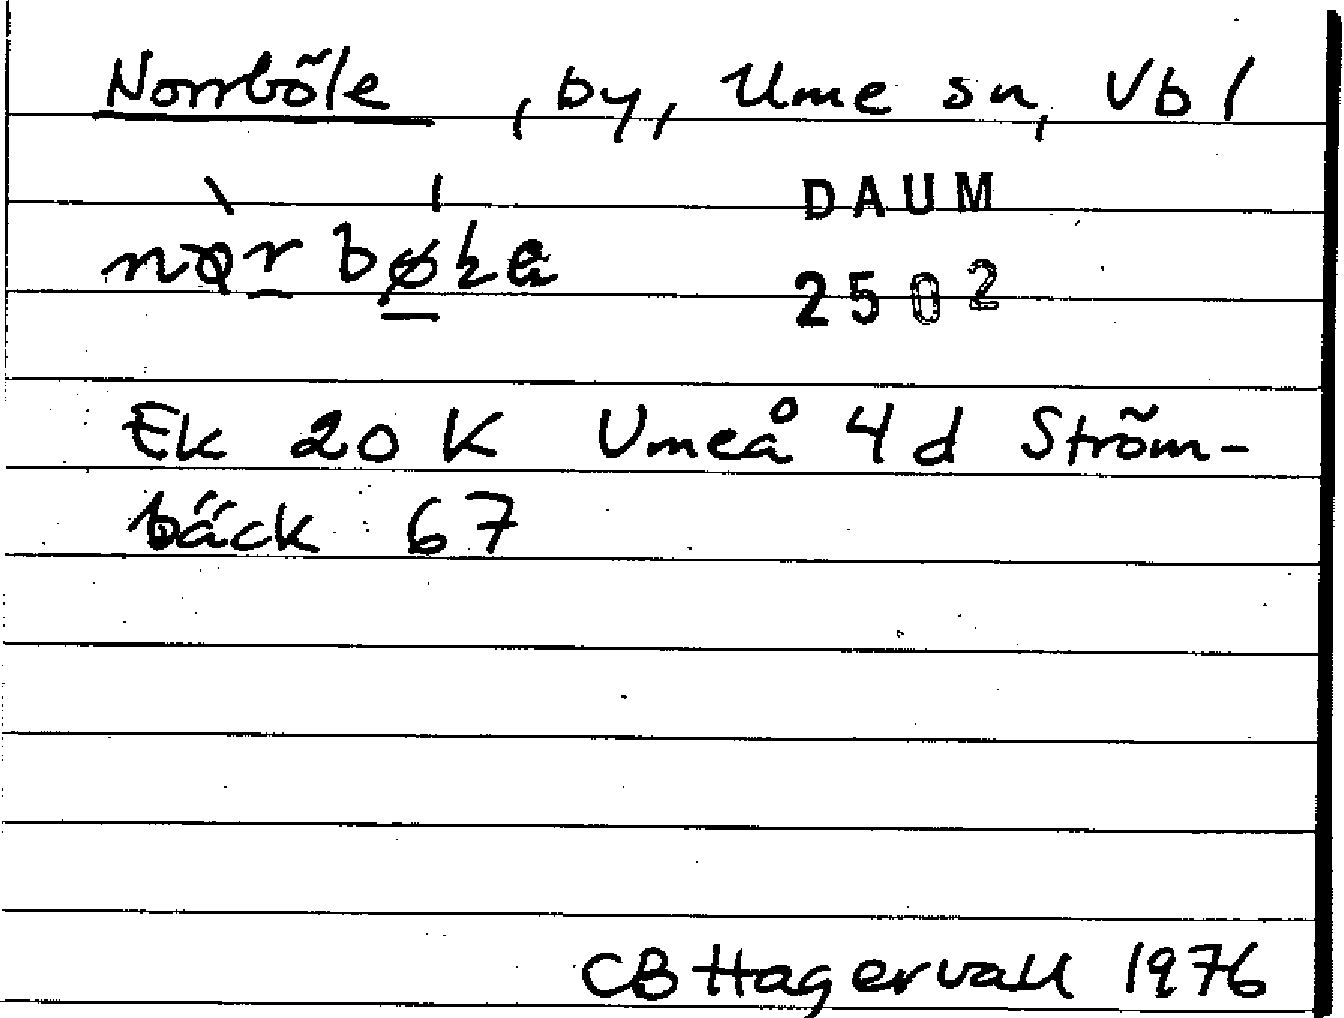 Norrböle, by, Ume sn, Vbl
DAUM
2502
Ek 20 K Umeå 4 d Ström-
bäck 67
CB Hagervall 1976